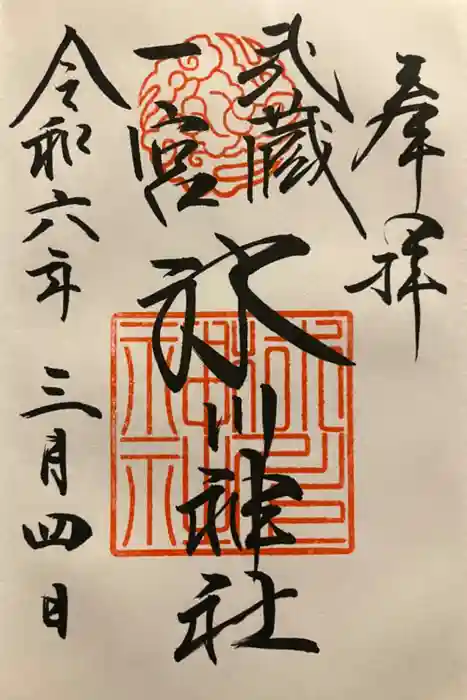 奉拝
武蔵
一宮
氷川神社
令和六年 三月四日